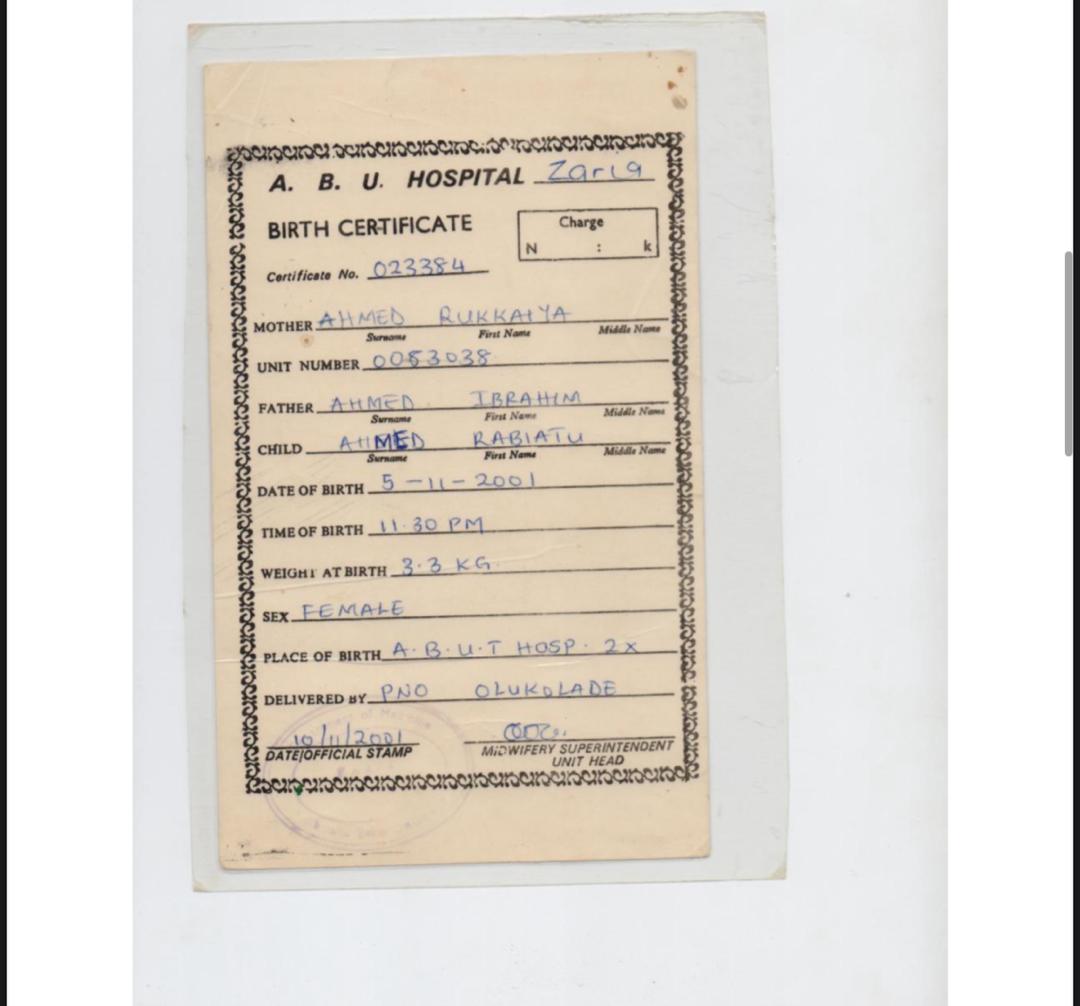 A. B. U. HOSPITAL Zaria
BIRTH CERTIFICATE
Charge
N : k
Certificate No. 023384
MOTHER AHMED RUKKAIYA
Surname First Name Middle Name
UNIT NUMBER 0053038
FATHER AHMED IBRAHIM
Surname First Name Middle Name
CHILD AHMED RABIATU
Surname First Name Middle Name
DATE OF BIRTH 5-11-2001
TIME OF BIRTH 11.30 PM
WEIGHT AT BIRTH 3.3 KG.
SEX FEMALE
PLACE OF BIRTH A.B.U.T HOSP. Zx
DELIVERED BY PNO OLUKOLADE
10/11/2001
DATE/OFFICIAL STAMP
MIDWIFERY SUPERINTENDENT
UNIT HEAD